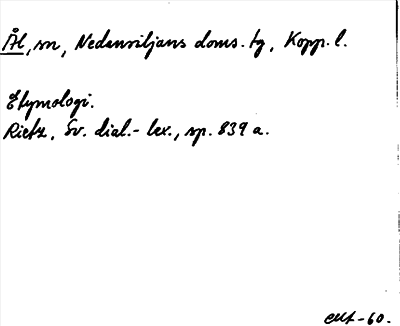 Ål, sn, Nedansiljans doms. tg, Kopp. l.
Etymologi.
Rietz, Sv. dial.-lex., sp. 839 a.
-60.